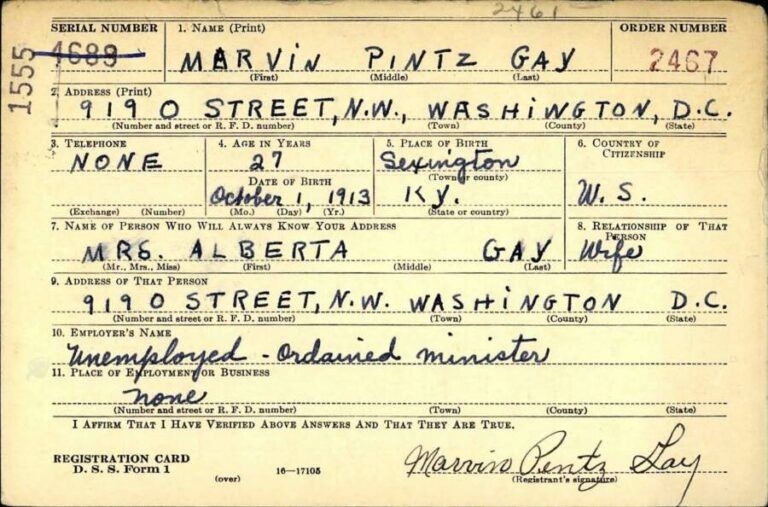 2461
SERIAL NUMBER 1. NAME (Print) ORDER NUMBER
1555 4689 MARVIN PINTZ GAY 2467
(First) (Middle) (Last)
2. ADDRESS (Print)
919 O STREET, N.W., WASHINGTON, D.C.
(Number and street or R. F. D. number) (Town) (County) (State)
3. TELEPHONE 4. AGE IN YEARS 5. PLACE OF BIRTH 6. COUNTRY OF CITIZENSHIP
NONE 27 Lexington
(Town or county)
DATE OF BIRTH
October 1, 1913 Ky. U. S.
(Exchange) (Number) (Mo.) (Day) (Yr.) (State or country)
7. NAME OF PERSON WHO WILL ALWAYS KNOW YOUR ADDRESS 8. RELATIONSHIP OF THAT PERSON
MRS. ALBERTA GAY Wife
(Mr., Mrs., Miss) (First) (Middle) (Last)
9. ADDRESS OF THAT PERSON
919 O STREET, N.W. WASHINGTON D.C.
(Number and street or R. F. D. number) (Town) (County) (State)
10. EMPLOYER'S NAME
Unemployed - Ordained minister
11. PLACE OF EMPLOYMENT OR BUSINESS
none
(Number and street or R. F. D. number) (Town) (County) (State)
I AFFIRM THAT I HAVE VERIFIED ABOVE ANSWERS AND THAT THEY ARE TRUE.
REGISTRATION CARD
D. S. S. Form 1
(over) 16—17105
Marvin Pentz Gay
(Registrant's signature)